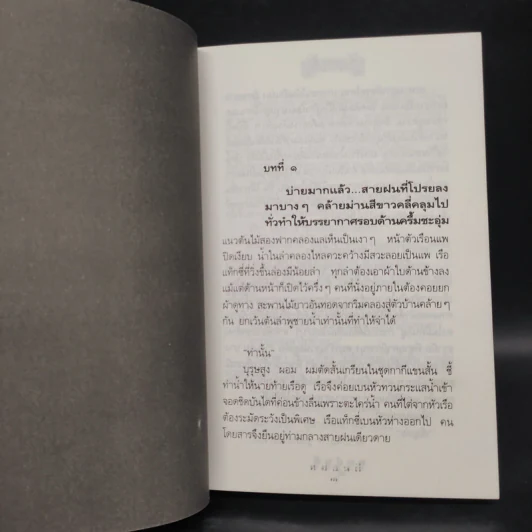 บทที่ ๑
บ่ายมากแล้ว...สายฝนที่โปรยลง
มาบาง ๆ คล้ายม่านสีขาวคลี่คลุมไป
ทั่วทำให้บรรยากาศรอบด้านครึ้มชะอุ่ม
แนวต้นไม้สองฟากคลองแลเห็นเป็นเงา ๆ หน้าตัวเรือนแพ
ปิดเงียบ น้ำในลำคลองไหลคว้างมีสวะลอยเป็นแพ เรือ
แท็กซี่ที่วิ่งขึ้นล่องมีน้อยลำ ทุกลำต้องเอาผ้าใบด้านข้างลง
แม้แต่ด้านหน้าก็เปิดไว้ครึ่ง ๆ คนที่นั่งอยู่ภายในต้องคอยยก
ผ้าดูทาง สะพานไม้ยาวอันทอดจากริมคลองสู่ตัวบ้านคล้าย ๆ
กัน ยกเว้นต้นลำพูชายน้ำเท่านั้นที่ทำให้จำได้
"ท่านั้น"
บุรุษสูง ผอม ผมตัดสั้นเกรียนในชุดกากีแขนสั้น ชี้
ท่าน้ำให้นายท้ายเรือดู เรือจึงค่อยเบนหัวทวนกระแสน้ำเข้า
จอดชิดบันไดที่ค่อนข้างลื่นเพราะตะไคร่น้ำ คนที่ไต่จากหัวเรือ
ต้องระมัดระวังเป็นพิเศษ เรือแท็กซี่เบนหัวห่างออกไป คน
โดยสารจึงยืนอยู่ท่ามกลางสายฝนเดียวดาย